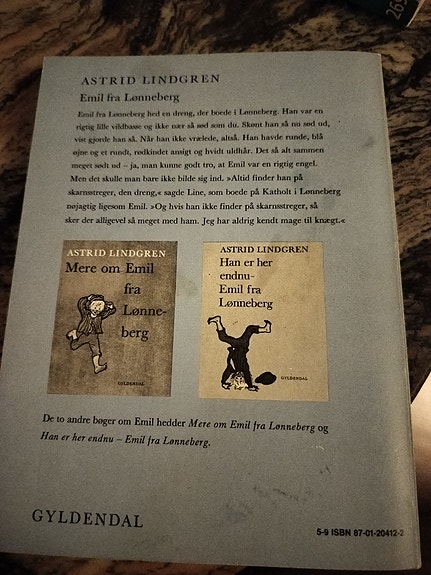 265
ASTRID LINDGREN
Emil fra Lønneberg
Emil fra Lønneberg hed en dreng, der boede i Lønneberg. Han var en
rigtig lille vildbasse og ikke nær så sød som du. Skønt han så nu sød ud,
vist gjorde han så. Når han ikke vrælede, altså. Han havde runde, blå
øjne og et rundt, rødkindet ansigt og hvidt uldhår. Det så alt sammen
meget sødt ud – ja, man kunne godt tro, at Emil var en rigtig engel.
Men det skulle man bare ikke bilde sig ind. »Altid finder han på
skarnsstreger, den dreng,« sagde Line, som boede på Katholt i Lønneberg
nøjagtig ligesom Emil. »Og hvis han ikke finder på skarnsstreger, så
sker der alligevel så meget med ham. Jeg har aldrig kendt mage til knægt.«
ASTRID LINDGREN
Mere om Emil
fra
Lønne-
berg
GYLDENDAL
ASTRID LINDGREN
Han er her
endnu–
Emil fra
Lønneberg
GYLDENDAL
De to andre bøger om Emil hedder Mere om Emil fra Lønneberg og
Han er her endnu – Emil fra Lønneberg.
GYLDENDAL
5-9 ISBN 87-01-20412-2